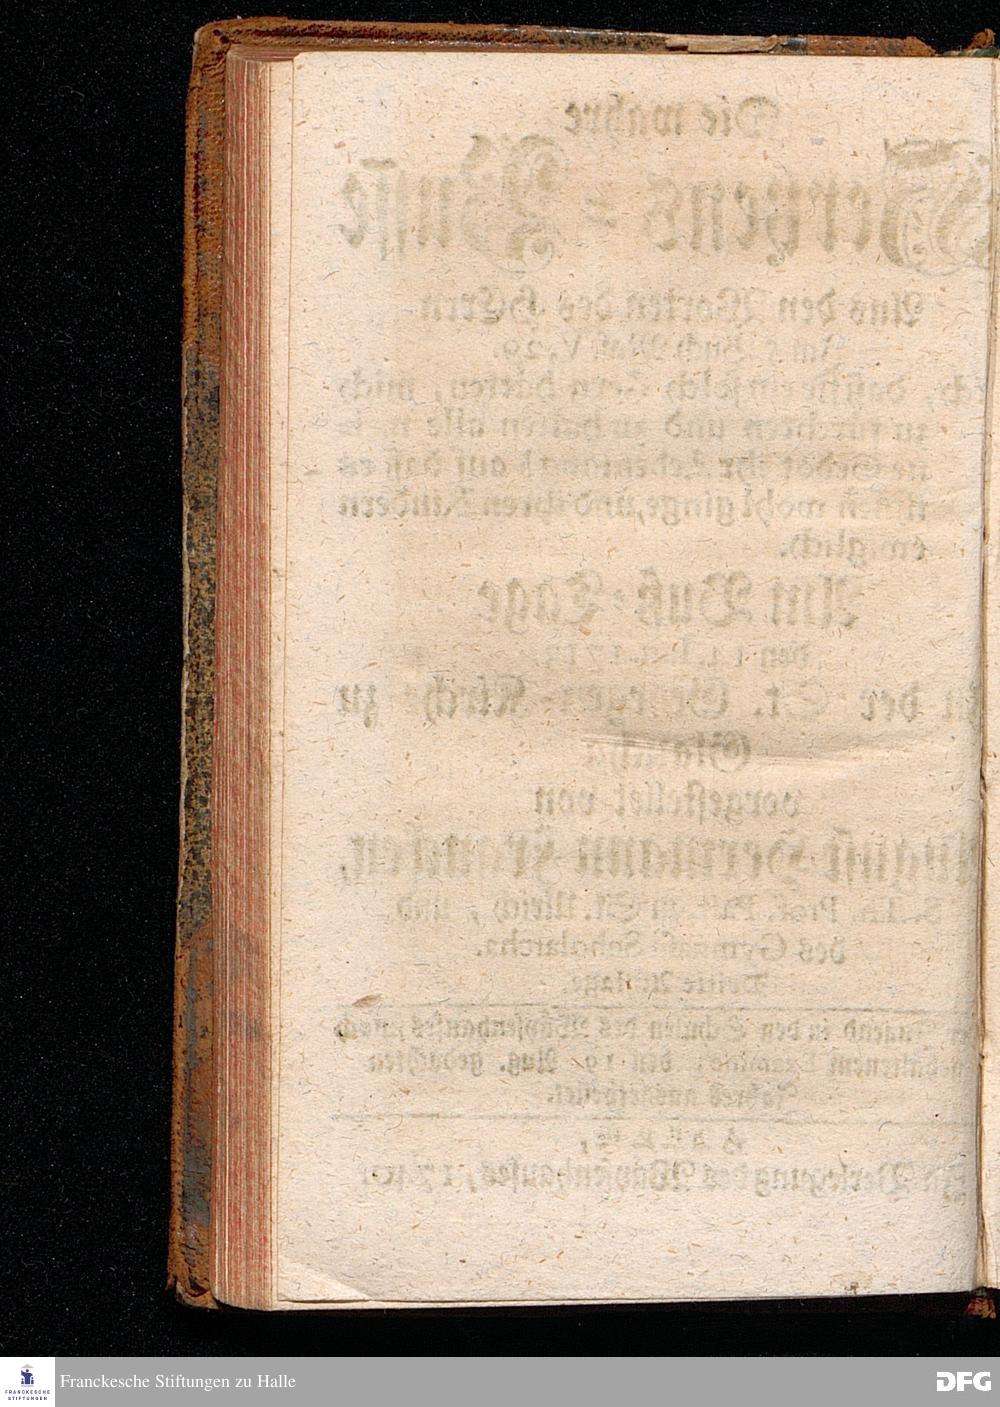 Die wahre
Hertzens = Buße
Aus den Worten des HErrn
Am 5. Buch Mos. V, 29.
daß sie ein solch Hertz hätten, mich
zu fürchten und zu halten alle
Gebot ihr Lebenlang / auf daß es
ihnen wohl ginge, und ihren Kindern
ewiglich.
Am Buß-Tage
den
in der St. Georgen-Kirche zu
Glaucha
vorgestellet von
August Hermann Francken,
S. Th. Prof. Past. zu St. Ulrich, und
des Gymnasii Scholarcha.
Dritte Auflage.
Jugend in den Schulen des Wäysenhauses, nach
gehaltenem Examine, den 19. Aug. gedachten
Jahres ausgetheilet.
HALLE,
In Verlegung des Wäysenhauses,
FRANCKESCHE
STIFTUNGEN
Franckesche Stiftungen zu Halle
DFG